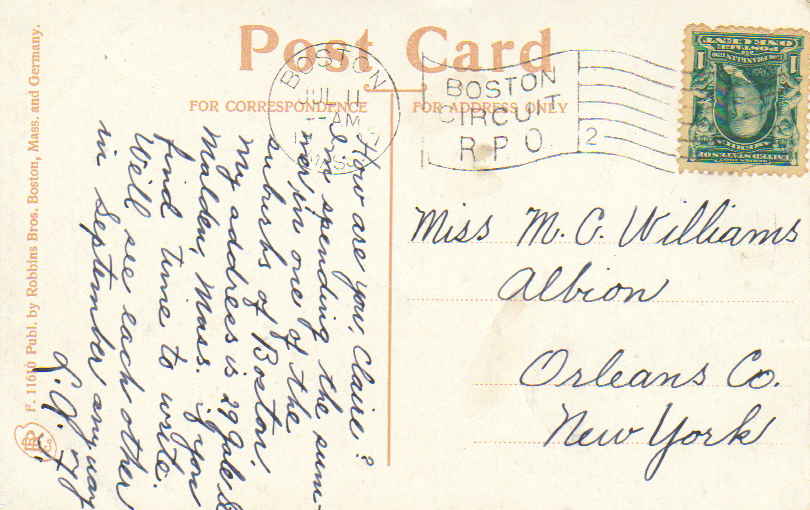 Post Card
FOR CORRESPONDENCE
FOR ADDRESS ONLY
BOSTON
JUL 11
AM
MASS
BOSTON
CIRCUIT
R P O
2
1
1
How are you, Claire?
I'm spending the sum-
mer in one of the
suburbs of Boston.
My address is 29 Gale St
Malden, Mass. if you
find time to write.
We'll see each other
in September anyway
Miss M. C. Williams
Albion
Orleans Co.
New York
F. 11610 Publ. by Robbins Bros. Boston, Mass. and Germany.